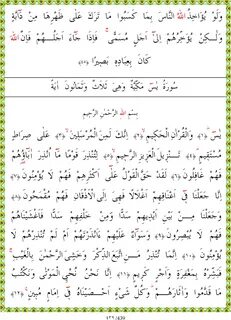 وَلَوْ يُؤَاخِذُ اللهُ النَّاسَ بِمَا كَسَبُوا مَا تَرَكَ عَلَى ظَهْرِهَا مِنْ دَٓابَّةٍ
وَلٰكِنْ يُؤَخِّرُهُمْ اِلٰٓى اَجَلٍ مُسَمًّى فَاِذَا جَٓاءَ اَجَلُهُمْ فَاِنَّ اللهَ
كَانَ بِعِبَادِهِ بَصِيرًا ﴿٤٥﴾
سُورَةُ يٰسٓ مَكِّيَّةٌ وَهِيَ ثَلَاثٌ وَثَمَانُونَ اٰيَةً
بِسْمِ اللهِ الرَّحْمٰنِ الرَّحِيمِ
يٰسٓ ﴿١﴾ وَالْقُرْاٰنِ الْحَكِيمِ ﴿٢﴾ اِنَّكَ لَمِنَ الْمُرْسَلِينَ ﴿٣﴾ عَلٰى صِرَاطٍ
مُسْتَقِيمٍ ﴿٤﴾ تَنْزِيلَ الْعَزِيزِ الرَّحِيمِ ﴿٥﴾ لِتُنْذِرَ قَوْمًا مَٓا اُنْذِرَ اٰبَٓاؤُهُمْ
فَهُمْ غَافِلُونَ ﴿٦﴾ لَقَدْ حَقَّ الْقَوْلُ عَلٰٓى اَكْثَرِهِمْ فَهُمْ لَا يُؤْمِنُونَ ﴿٧﴾
اِنَّا جَعَلْنَا فِٓي اَعْنَاقِهِمْ اَغْلَالًا فَهِيَ اِلَى الْاَذْقَانِ فَهُمْ مُقْمَحُونَ ﴿٨﴾
وَجَعَلْنَا مِنْ بَيْنِ اَيْدِيهِمْ سَدًّا وَمِنْ خَلْفِهِمْ سَدًّا فَاَغْشَيْنَاهُمْ
فَهُمْ لَا يُبْصِرُونَ ﴿٩﴾ وَسَوَٓاءٌ عَلَيْهِمْ ءَاَنْذَرْتَهُمْ اَمْ لَمْ تُنْذِرْهُمْ لَا
يُؤْمِنُونَ ﴿١٠﴾ اِنَّمَا تُنْذِرُ مَنِ اتَّبَعَ الذِّكْرَ وَخَشِيَ الرَّحْمٰنَ بِالْغَيْبِ
فَبَشِّرْهُ بِمَغْفِرَةٍ وَاَجْرٍ كَرِيمٍ ﴿١١﴾ اِنَّا نَحْنُ نُحْيِ الْمَوْتٰى وَنَكْتُبُ
مَا قَدَّمُوا وَاٰثَارَهُمْ وَكُلَّ شَيْءٍ اَحْصَيْنَاهُ فِٓي اِمَامٍ مُبِينٍ ﴿١٢﴾